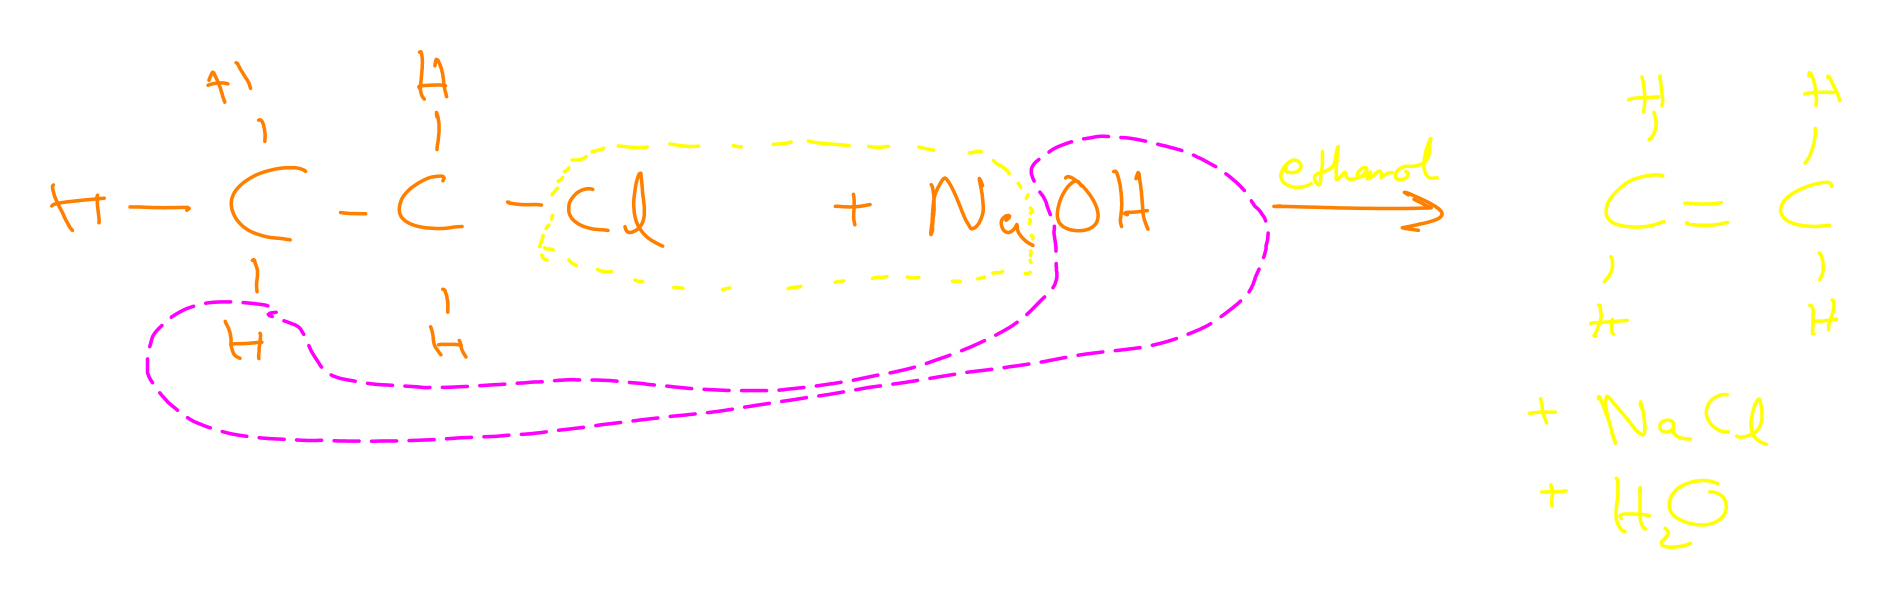 H H
H — C - C - Cl + NaOH ethanol →
H H
H H
C = C
H H
+ NaCl
+ H₂O